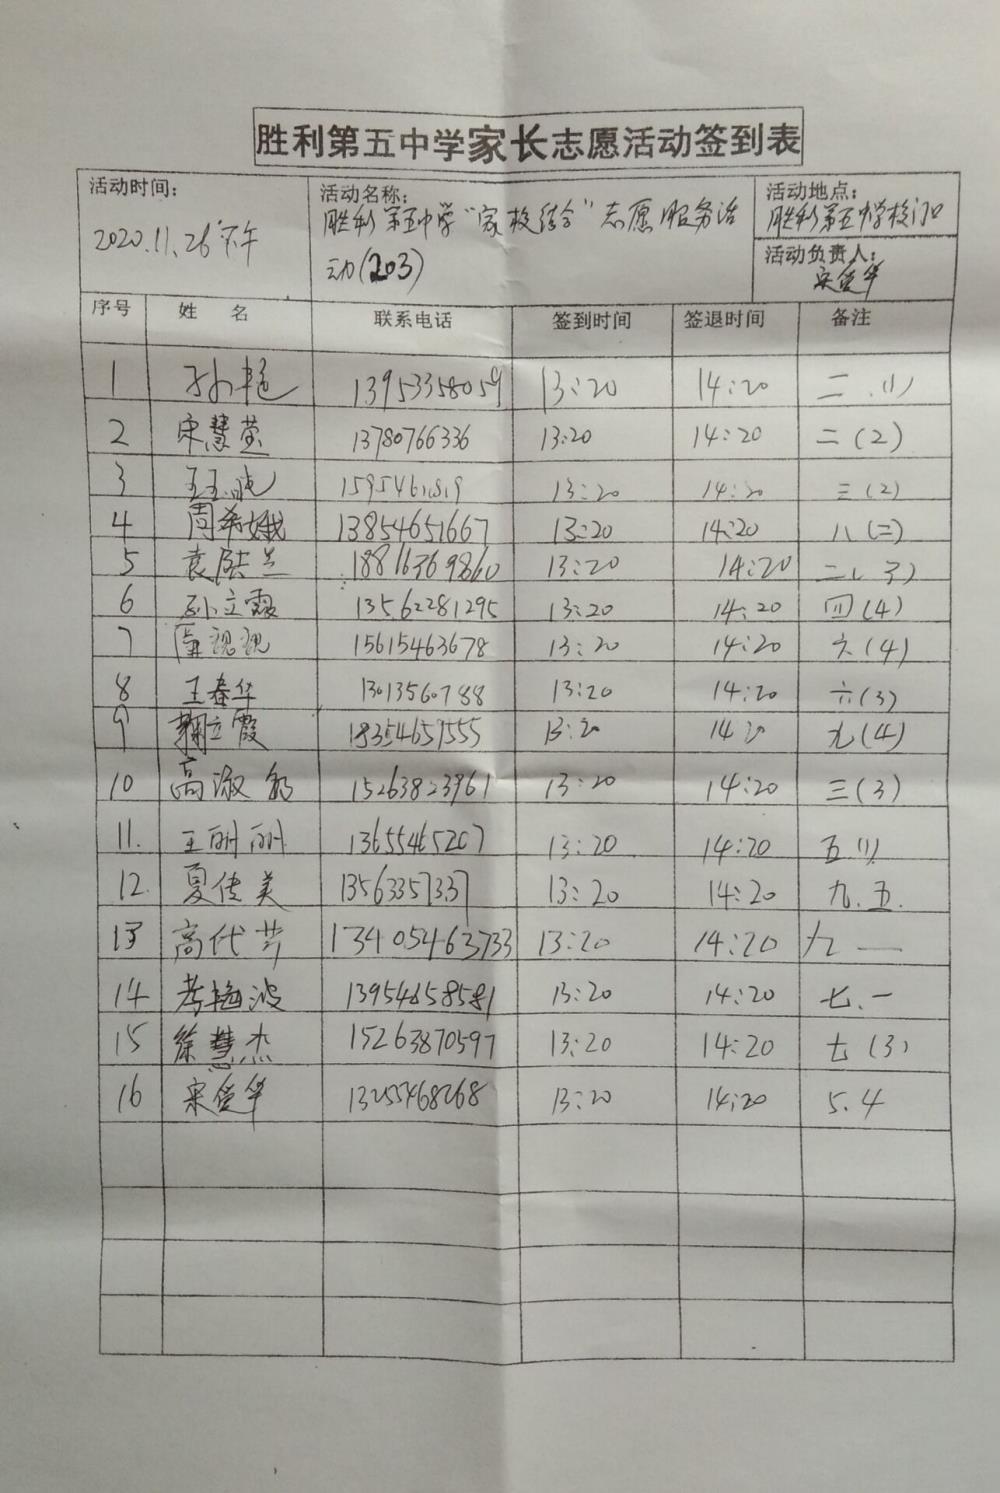 胜利第五中学家长志愿活动签到表
活动时间：
2020.11.26下午
活动名称：
胜利第五中学“家校结合”志愿服务活
动(203)
活动地点：
胜利第五中学校门口
活动负责人：
宋爱华
序号 姓 名 联系电话 签到时间 签退时间 备注
1 孙艳 13953358059 13:20 14:20 二.(1)
2 宋慧莹 13780766336 13:20 14:20 二(2)
3 13:20 14:20 三(2)
4 周希娥 13854651667 13:20 14:20 八(二)
5 袁陆兰 18816369860 13:20 14:20
6 孙立霞 13562281295 13:20 14:20 四(4)
7 15615463678 13:20 14:20 六(4)
8 王春华 13013560788 13:20 14:20 六(3)
9 立霞 18354659555 13:20 14:20 九(4)
10 高淑 15263823961 13:20 14:20 三(3)
11. 王丽丽 13655465207 13:20 14:20 五(1)
12. 夏佳美 13563357337 13:20 14:20 九.五.
13 高代芳 13405463733 13:20 14:20 九 一
14 考艳波 13954658581 13:20 14:20 七.一
15 徐慧杰 15263870597 13:20 14:20 七(3)
16 宋爱华 13255468268 13:20 14:20 5.4